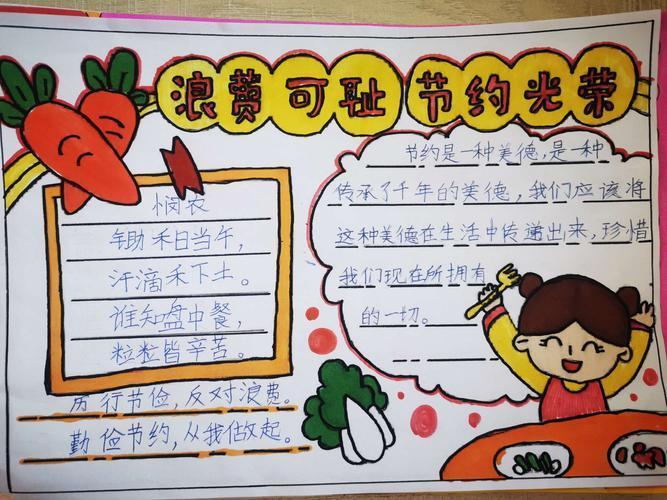 浪费可耻 节约光荣
悯农
锄禾日当午，
汗滴禾下土。
谁知盘中餐，
粒粒皆辛苦。
厉行节俭，反对浪费。
勤俭节约，从我做起。
节约是一种美德，是一种
传承了千年的美德，我们应该将
这种美德在生活中传递出来，珍惜
我们现在所拥有
的一切。